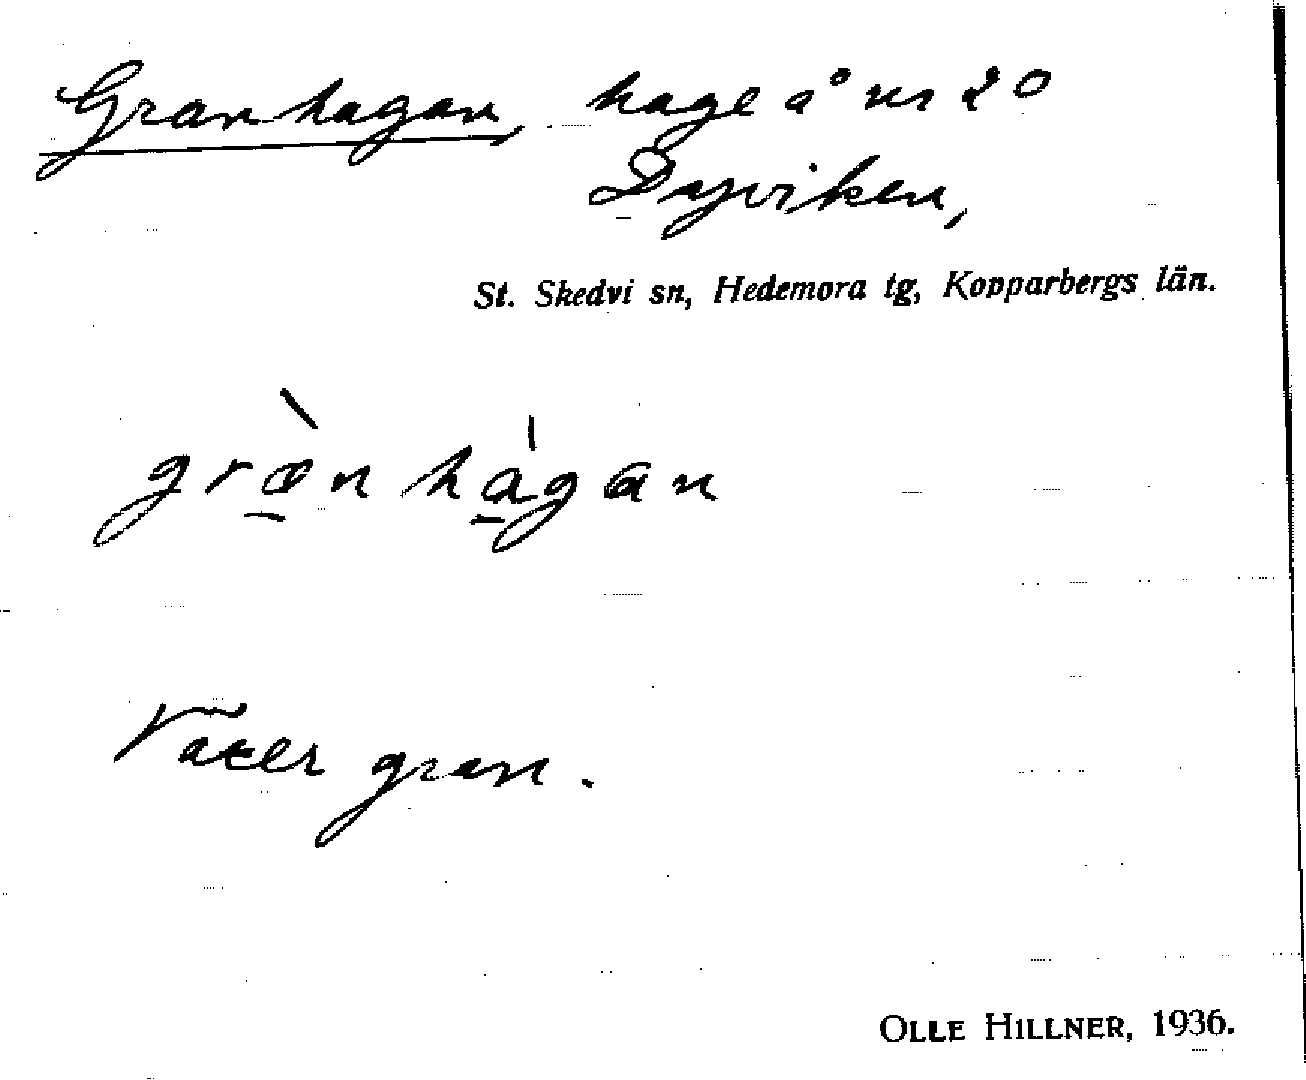 Granhagan, hage å nr 20
Dyviken,
St. Skedvi sn, Hedemora tg, Kopparbergs län.
grànhágan
Växer gran.
OLLE HILLNER, 1936.